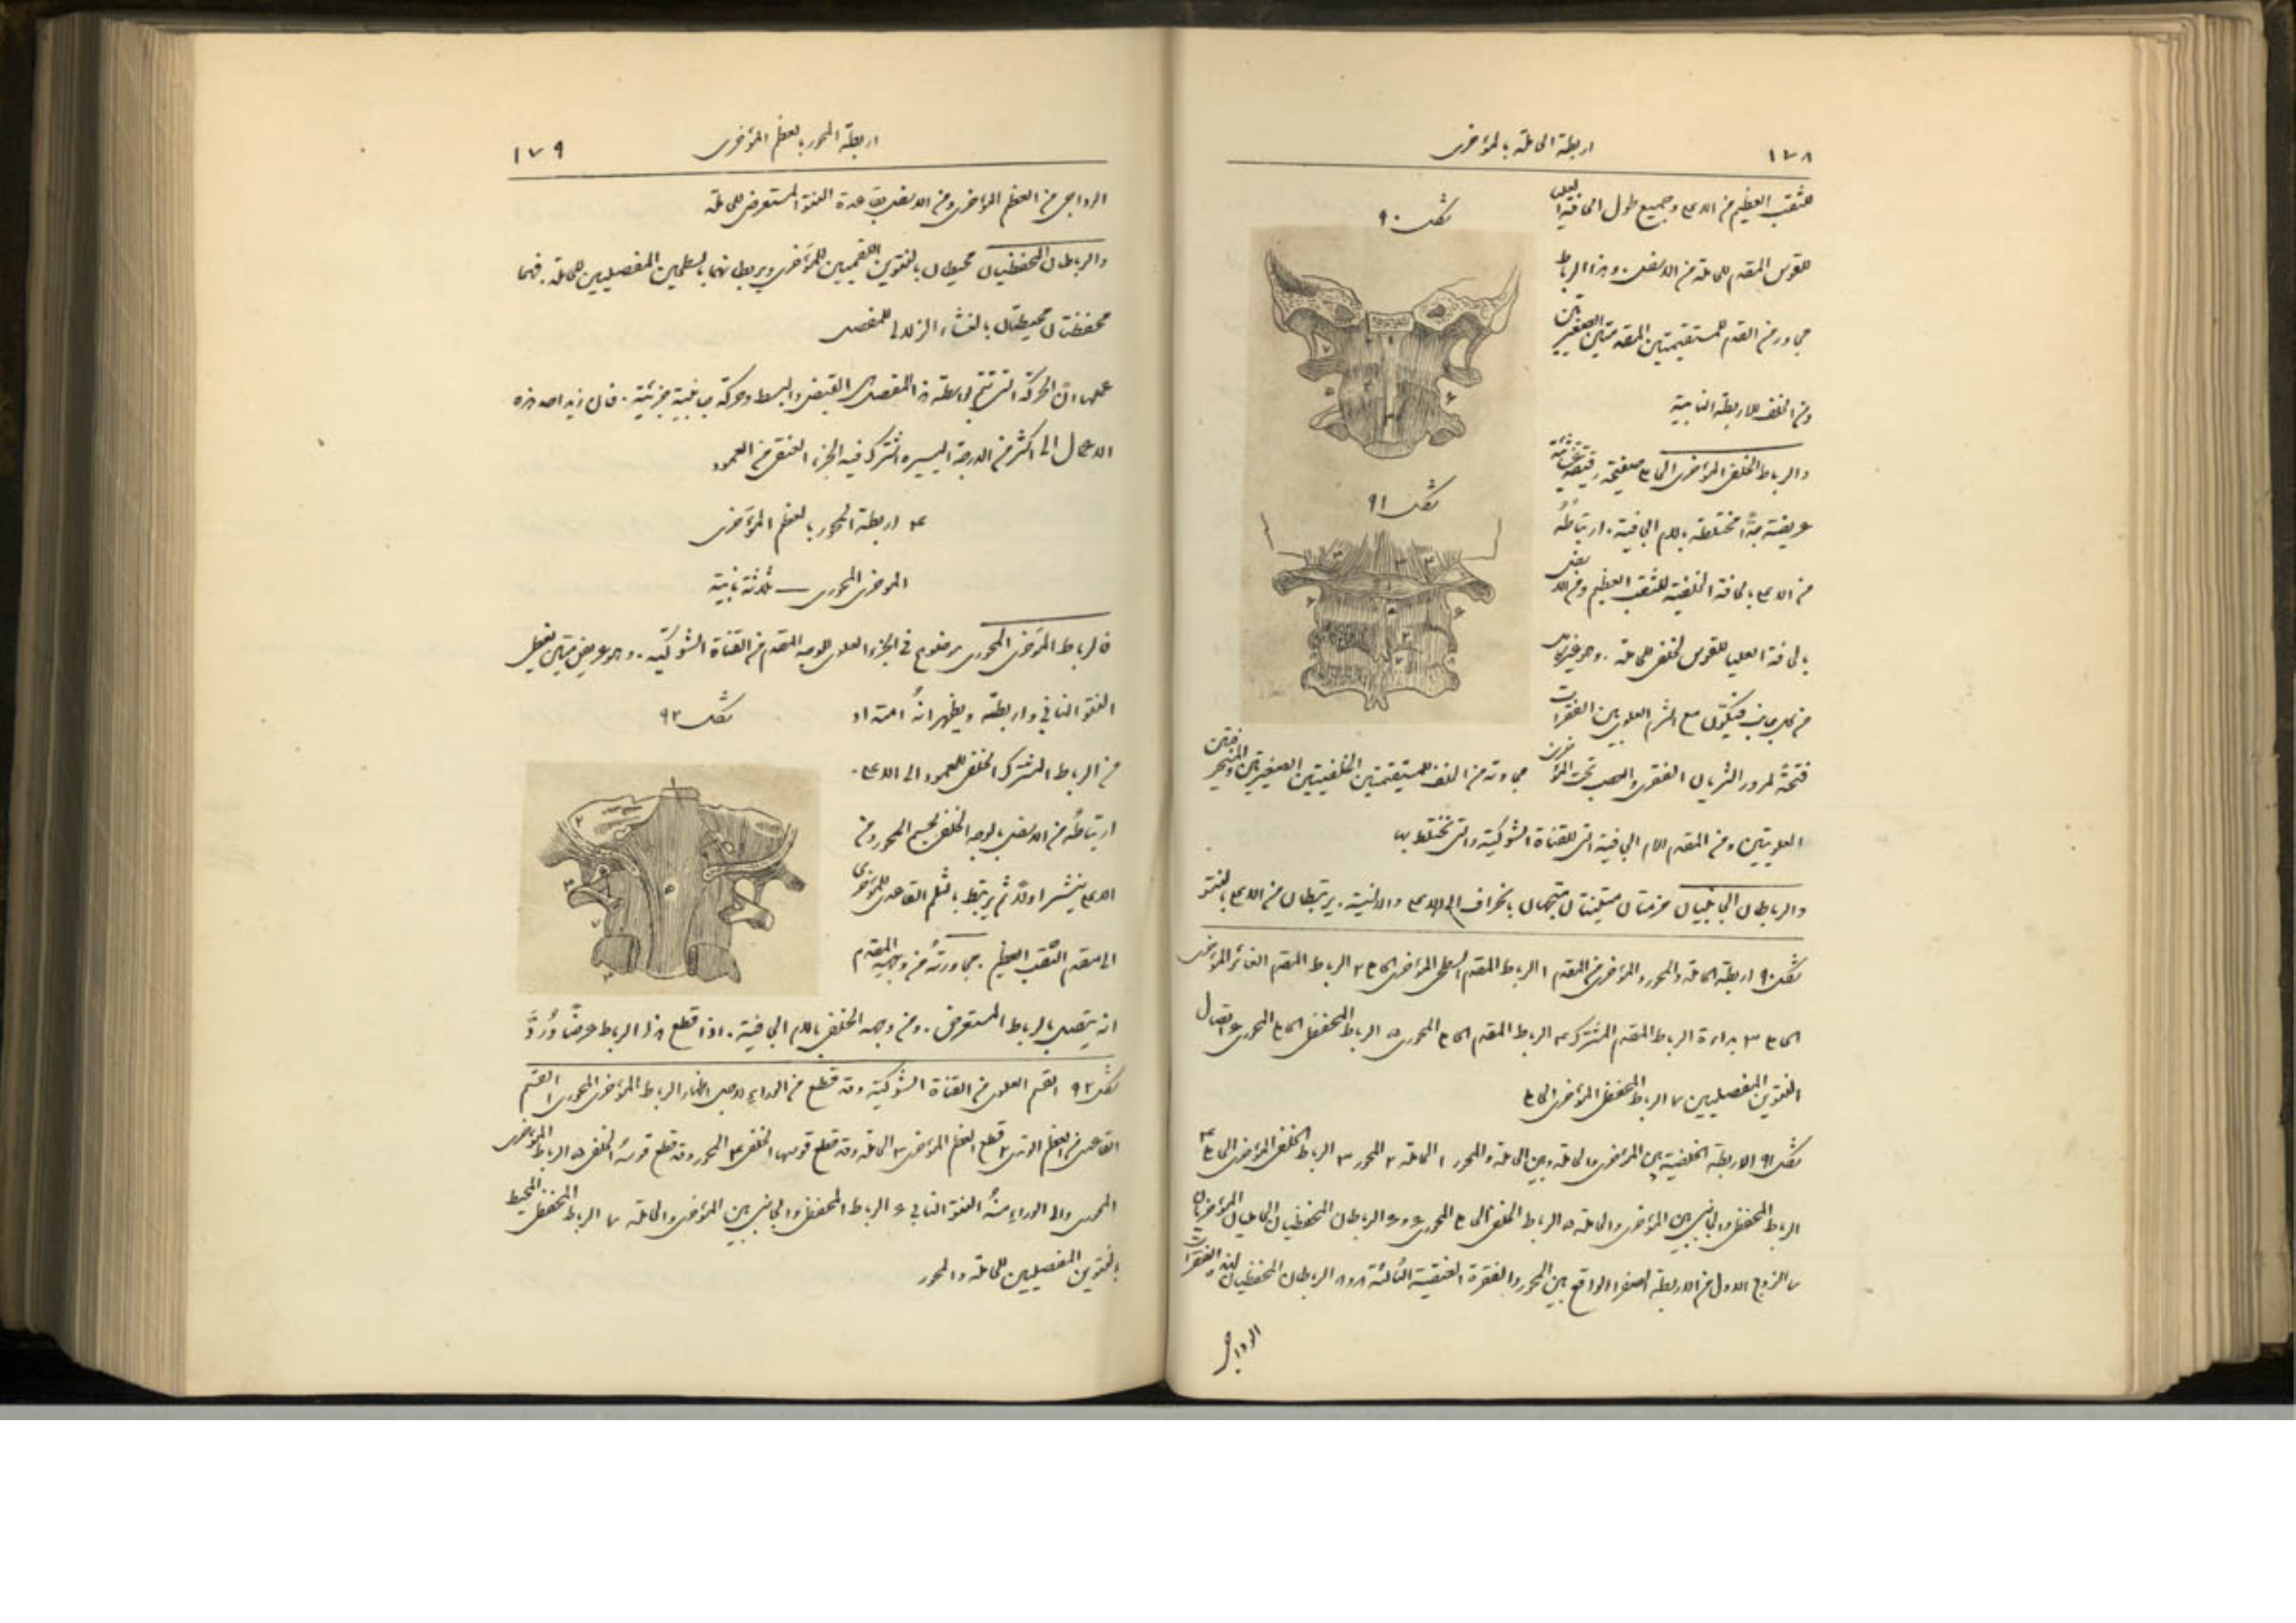 ١٧٨
اربطة الحاملة بالمؤخرى
للثقب العظيم من الاعلى وجميع طول الحافة العليا
للقوس المقدم للحاملة من الاسفل. وهذا الرباط
مجاور من القدم للمستقيمتين المقدمتين الصغيرتين
ومن الخلف للاربطة النابية
والرباط الخلفي المؤخرى الحاملي صفيحة رقيقة غشائية
عريضة جدًّا مختلطة بالام الجافية. ارتباطهُ
من الاعلى بالحافة الخلفية للثقب العظيم ومن الاسفل
بالحافة العليا للقوس الخلفي للحاملة. وهو غير كامل
من كل جانب فيتكوّن مع الشرم العلوي بين الفقرات
فتحةً لمرور الشريان الفقري والعصب تحت المؤخرى
مجاورته من الخلف للمستقيمتين الخلفيتين الصغيرتين والمنحرفتين
العلويتين ومن المقدم الام الجافية التي للقناة الشوكية والتي تختلط بها
والرباطان الجانبيان حزمتان متينتان متجهتان بانحراف الى الاعلى والانسية. يرتبطان من الاعلى بالنتو
شكل ٩٠
شكل ٩١
شكل ٩٠ اربطة الحاملة والمحور والمؤخرى من المقدم ١ الرباط المقدم السطحي المؤخرى الحاملي ٢ الرباط المقدم الغائر المؤخرى
الحاملي ٣ بداءة الرباط المقدم المشترك ٤ الرباط المقدم الحاملي المحوري ٥ الرباط المحفظي الحاملي المحوري ٦ اتصال
النتوين المفصليين ٧ الرباط المحفظي المؤخرى الحاملي
شكل ٩١ الاربطة الخلفية بين المؤخرى والحاملة وبين الحاملة والمحور ١ الحاملة ٢ المحور ٣ الرباط الخلفي المؤخرى الحاملي ٤
الرباط المحفظي والجانبي بين المؤخرى والحاملة ٥ الرباط الخلفي الحاملي المحوري ٦ و٦ الرباطان المحفظيان
٧ الزوج الاول من الاربطة الصفرا الواقع بين المحور والفقرة العنقية الثالثة ٨ و٨ الرباطان المحفظيان
الوداجي
اربطة المحور بالعظم المؤخرى
١٧٩
الوداجي من العظم المؤخرى ومن الاسفل بقاعدة النتو المستعرض للحاملة
والرباطان المحفظيان محيطان بالنتوين اللقميين للمؤخرى ويربطانهما بالسطحين المفصليين للحاملة. فهما
محفظتان محيطتان بالغشاء الزلالي للمفصل
ان الحركة التي تتم بواسطة هذا المفصل هي القبض والبسط وحركة جانبية جزئية. فان زيد احد هذه
الاعمال الى اكثر من الدرجة اليسيره اشترك فيه الجزء العنقي من العمود
٣ اربطة المحور بالعظم المؤخرى
المؤخرى المحوري — ثلاثة نابية
فالرباط المؤخرى المحوري موضوع في الجزء العلوي للوجه المقدم من القناة الشوكية. وهو عريض متين يغطي
النتو النابي واربطته ويظهر انهُ امتداد
من الرباط المشترك الخلفي للعمود الى الاعلى.
ارتباطهُ من الاسفل بالوجه الخلفي لجسم المحور ومن
الاعلى ينتشر اولًا ثم يرتبط بالثلم القاعدي للمؤخرى
الى مقدم الثقب العظيم. مجاورتهُ من وجهه المقدم
انه يتصل بالرباط المستعرض. ومن وجهه الخلفي بالام الجافية. اذا قطع هذا الرباط عرضًا ورُدَّ
شكل ٩٢
شكل ٩٢ القسم العلوي من القناة الشوكية وقد قطع من الوراء لاجل اظهار الرباط المؤخرى المحوري ١ القسم
القاعدي من العظم الوتدي ٢ قطع العظم المؤخرى ٣ الحاملة وقد قطع قوسها الخلفي ٤ المحور وقد قطع قوسهُ الخلفي ٥ الرباط المؤخرى
المحوري والى الوراء منهُ النتو النابي ٦ الرباط المحفظي والجانبي بين المؤخرى والحاملة ٧ الرباط المحفظي المحيط
بالنتوين المفصليين للحاملة والمحور